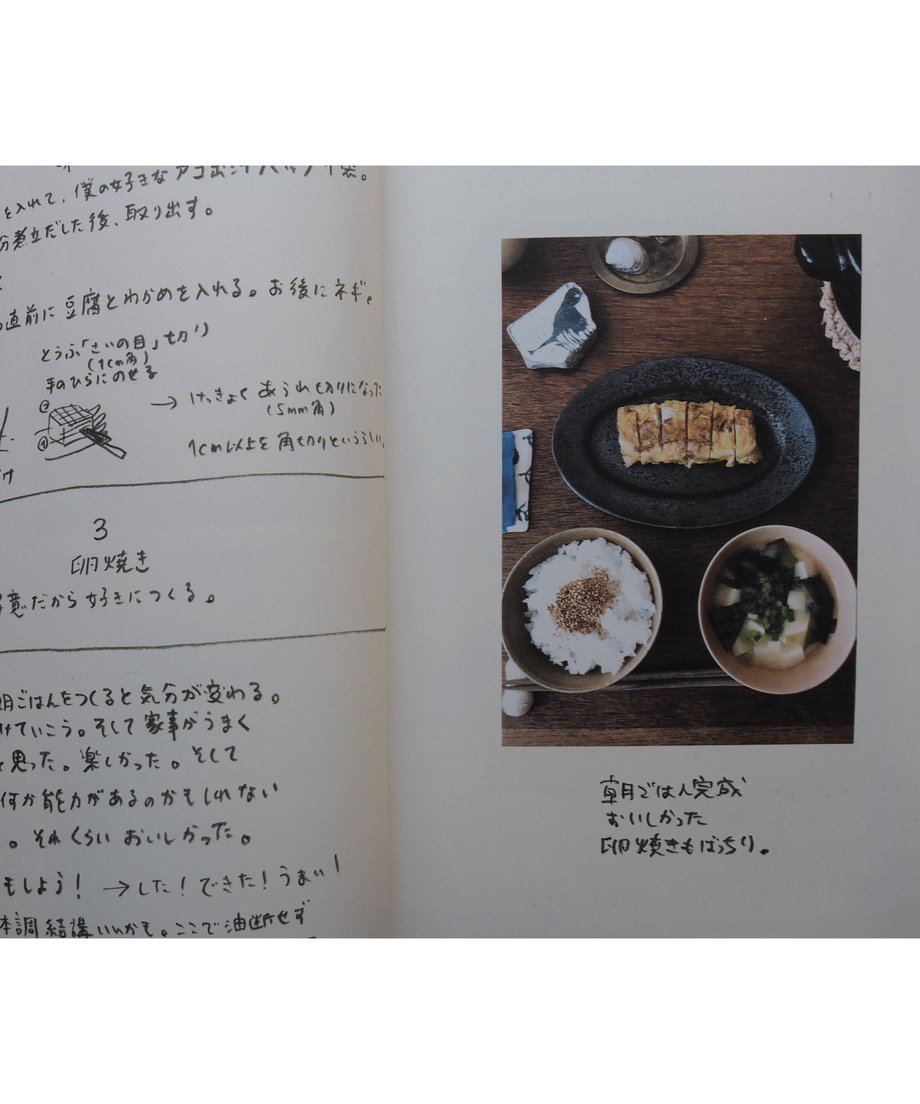 を入れて、僕の好きなアゴ出汁パック
分煮立だした後、取り出す。
直前に豆腐とわかめを入れる。お後にネギ。
とうふ「さいの目」切り
(1cm角)
手のひらにのせる
②
①
→ けっきょく あられ切りになった
(5mm角)
1cm以上を角切りというらしい。
3
卵焼き
意だから好きにつくる。
朝ごはんをつくると気分が変わる。
けていこう。そして家事がうまく
思った。楽しかった。そして
何か能力があるのかもしれない
。それくらいおいしかった。
もしよう! →した!できた!うまい!
体調結構いいかも。ここで油断せず
朝ごはん完成
おいしかった
卵焼きもばっちり。